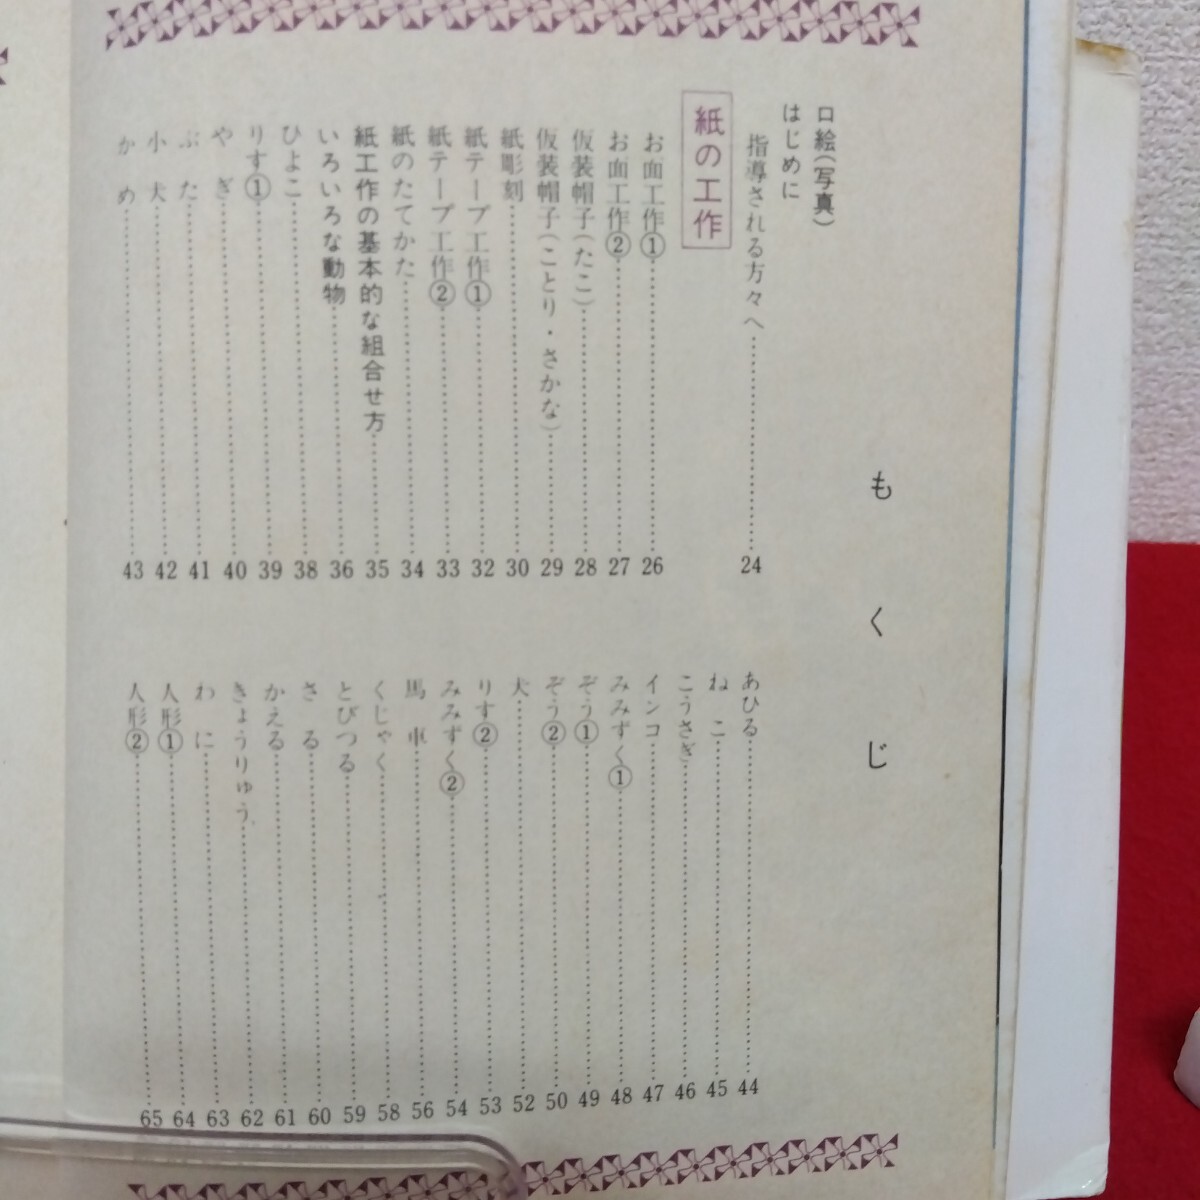 もくじ
口絵(写真)
はじめに
指導される方々へ……24
紙の工作
お面工作①……26
お面工作②……27
仮装帽子(たこ)……28
仮装帽子(ことり・さかな)……29
紙彫刻……30
紙テープ工作①……32
紙テープ工作②……33
紙のたてかた……34
紙工作の基本的な組合せ方……35
いろいろな動物……36
ひよこ……38
りす①……39
やぎ……40
ぶた……41
小犬……42
かめ……43
あひる……44
ねこ……45
こうさぎ……46
インコ……47
みみずく①……48
ぞう①……49
ぞう②……50
犬……52
りす②……53
みみずく②……54
馬車……56
くじゃく……58
とびつる……59
さる……60
かえる……61
きょうりゅう……62
わに……63
人形①……64
人形②……65